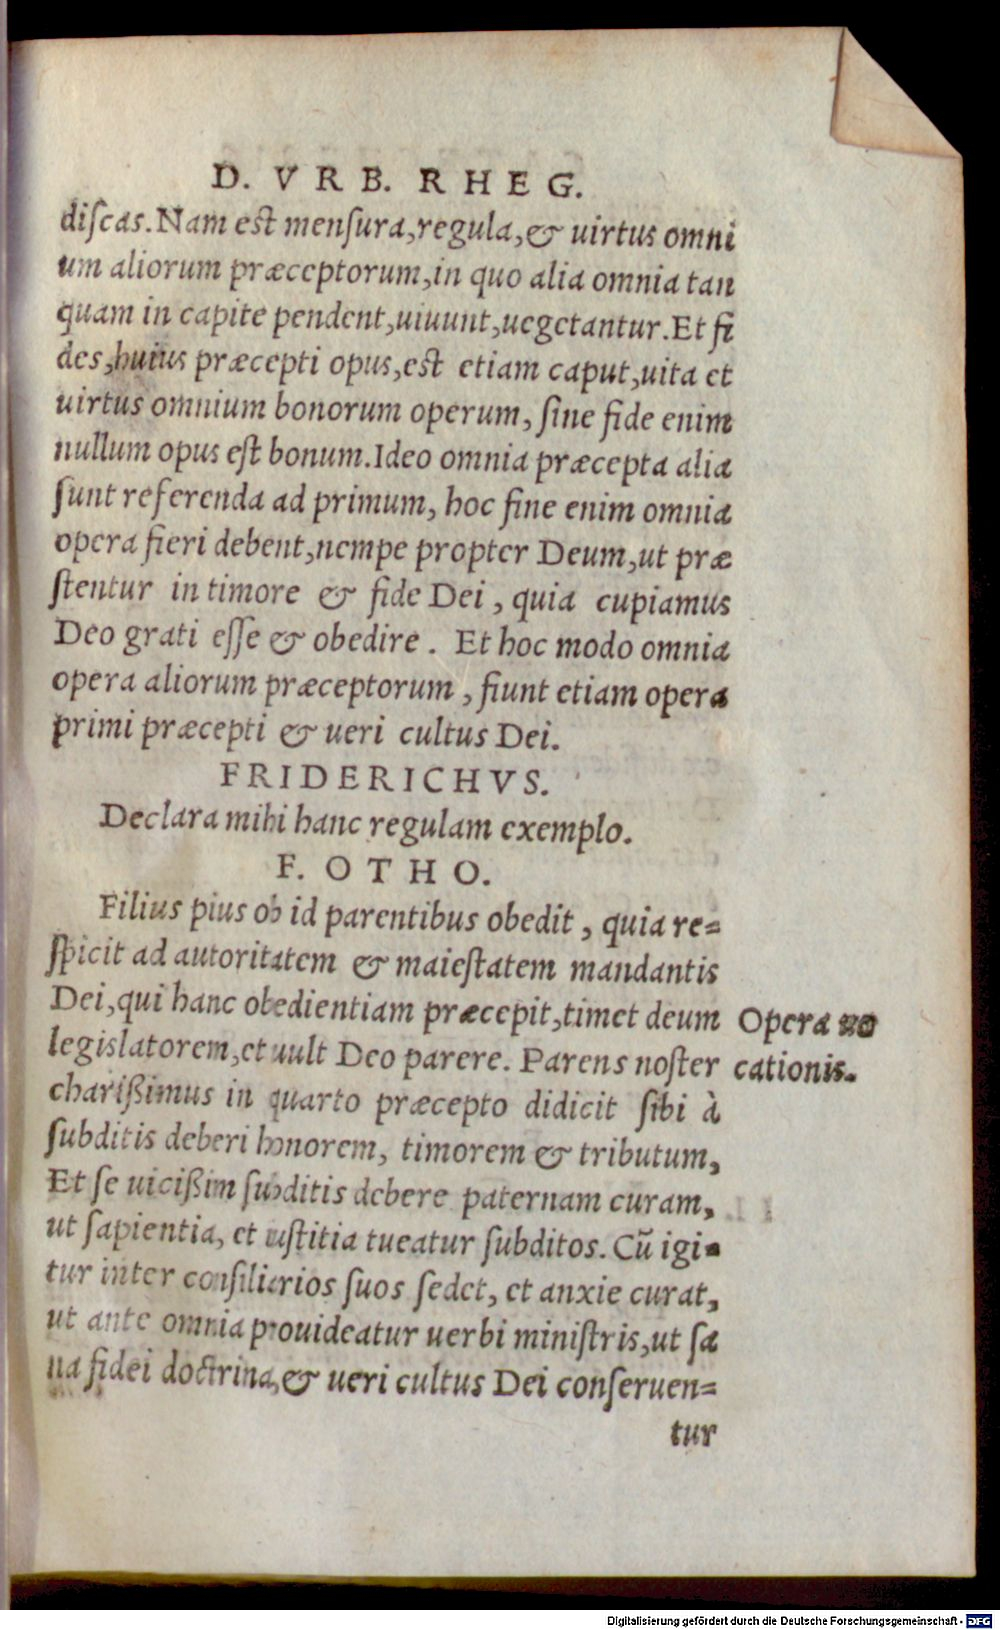 D. VRB. RHEG.
diſcas. Nam est menſura, regula, & uirtus omni
um aliorum præceptorum, in quo alia omnia tan
quam in capite pendent, uiuunt, uegetantur. Et fi
des, huius præcepti opus, est etiam caput, uita et
uirtus omnium bonorum operum, ſine fide enim
nullum opus eſt bonum. Ideo omnia præcepta alia
ſunt referenda ad primum, hoc fine enim omnia
opera fieri debent, nempe propter Deum, ut præ
ſtentur in timore & fide Dei, quia cupiamus
Deo grati eſſe & obedire. Et hoc modo omnia
opera aliorum præceptorum, fiunt etiam opera
primi præcepti & ueri cultus Dei.
FRIDERICHVS.
Declara mihi hanc regulam exemplo.
F. OTHO.
Filius pius ob id parentibus obedit, quia re=
ſpicit ad autoritatem & maieſtatem mandantis
Dei, qui hanc obedientiam præcepit, timet deum
legislatorem, et uult Deo parere. Parens noſter
chariſſimus in quarto præcepto didicit ſibi à
ſubditis deberi honorem, timorem & tributum,
Et ſe uiciſſim ſubditis debere paternam curam,
ut ſapientia, et iuſtitia tueatur ſubditos. Cũ igi=
tur inter conſiliarios ſuos ſedet, et anxie curat,
ut ante omnia prouideatur uerbi miniſtris, ut ſa
na fidei doctrina, & ueri cultus Dei conſeruen=
tur
Opera uo
cationis.
Digitalisierung gefördert durch die Deutsche Forschungsgemeinschaft - DFG